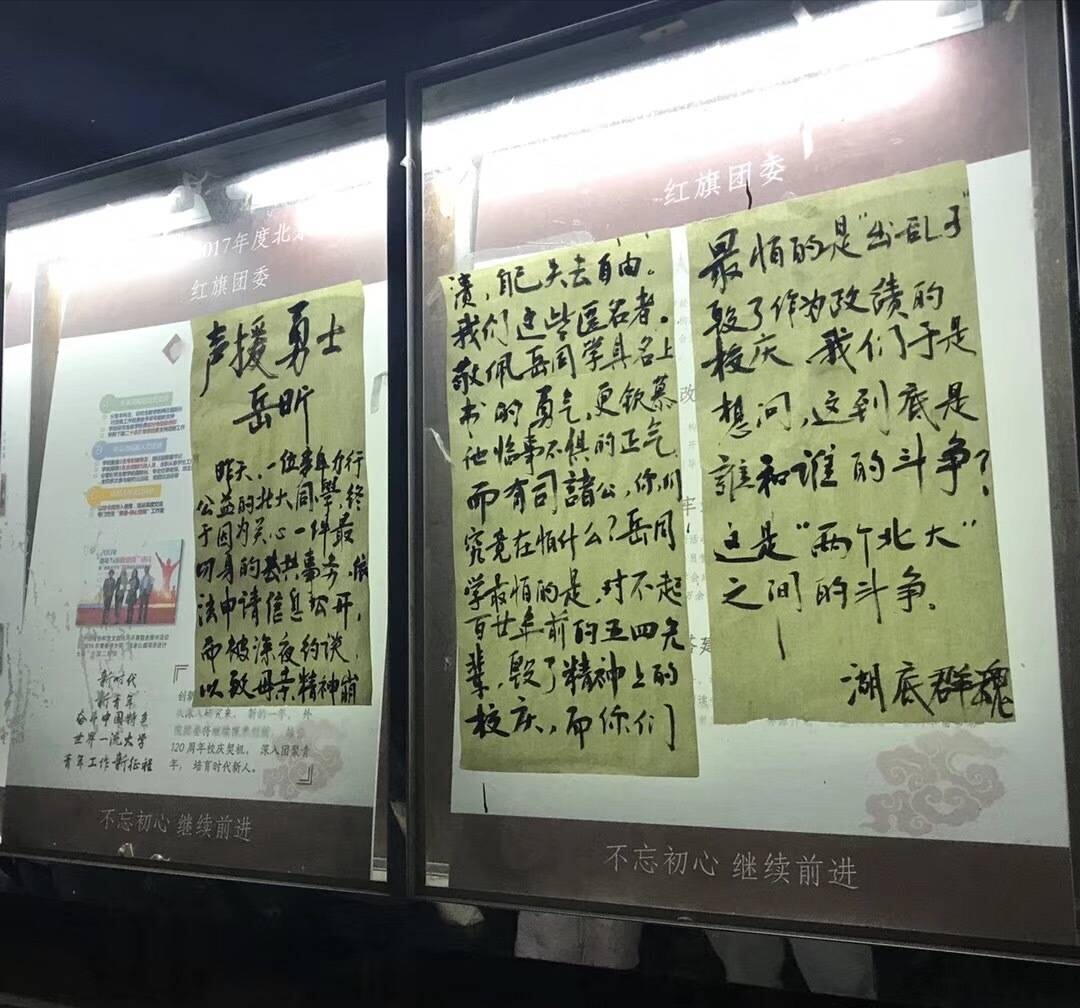 2017年度北京
红旗团委
声援勇士
岳昕
昨天,一位拳拳力行
公益的北大同學,终
于因为关心一件最
切身的公共事务,依
法申请信息公开,
而被深夜约谈,
以致母亲精神崩
新时代
新青年
奋斗中国特色
世界一流大学
青年工作新征程
120周年校庆契机,深入团聚青
年,培育时代新人。
不忘初心 继续前进
红旗团委
溃,自己失去自由。
我们这些匿名者。
敬佩岳同学具名上
书的勇气,更钦慕
他临事不惧的正气
而有司諸公,你们
究竟在怕什么?岳同
学最怕的是,对不起
百廿年前的五四先
辈,毁了精神上的
校庆,而你们
最怕的是“出乱子”
毁了作为政绩的
校庆,我们于是
想问,这到底是
誰和谁的斗争?
这是“两个北大”
之间的斗争.
湖底群魂
不忘初心 继续前进